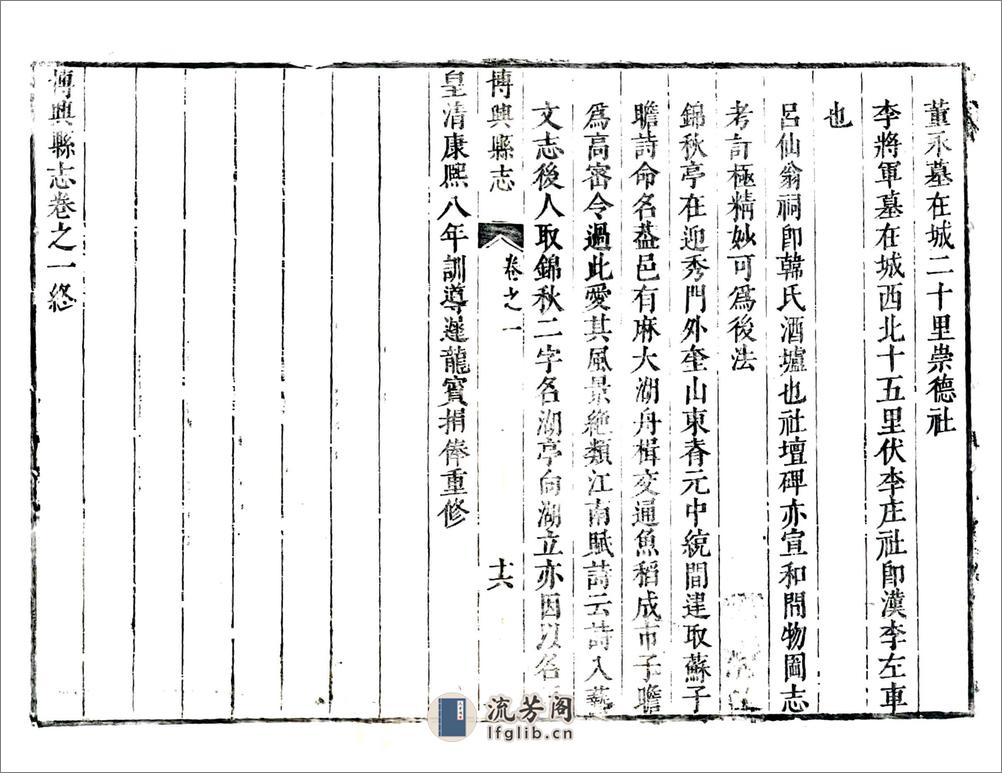 董永墓在城二十里崇德社
李將軍墓在城西北十五里伏李庄社即漢李左車
也
呂仙翁祠即韓氏酒壚也社壇碑亦宣和間物圖志
考訂極精妙可爲後法
錦秋亭在迎秀門外奎山東脊元中統間建取蘇子
瞻詩命名葢邑有麻大湖舟楫交通魚稻成市子瞻
爲高密令過此愛其風景絶類江南賦詩云詩入藝
文志後人取錦秋二字名湖亭向湖立亦因以名
博興縣志 卷之一 十六
皇清康熈八年訓導遲龍賓捐俸重修
博興縣志卷之一終
流芳阁
lfglib.cn